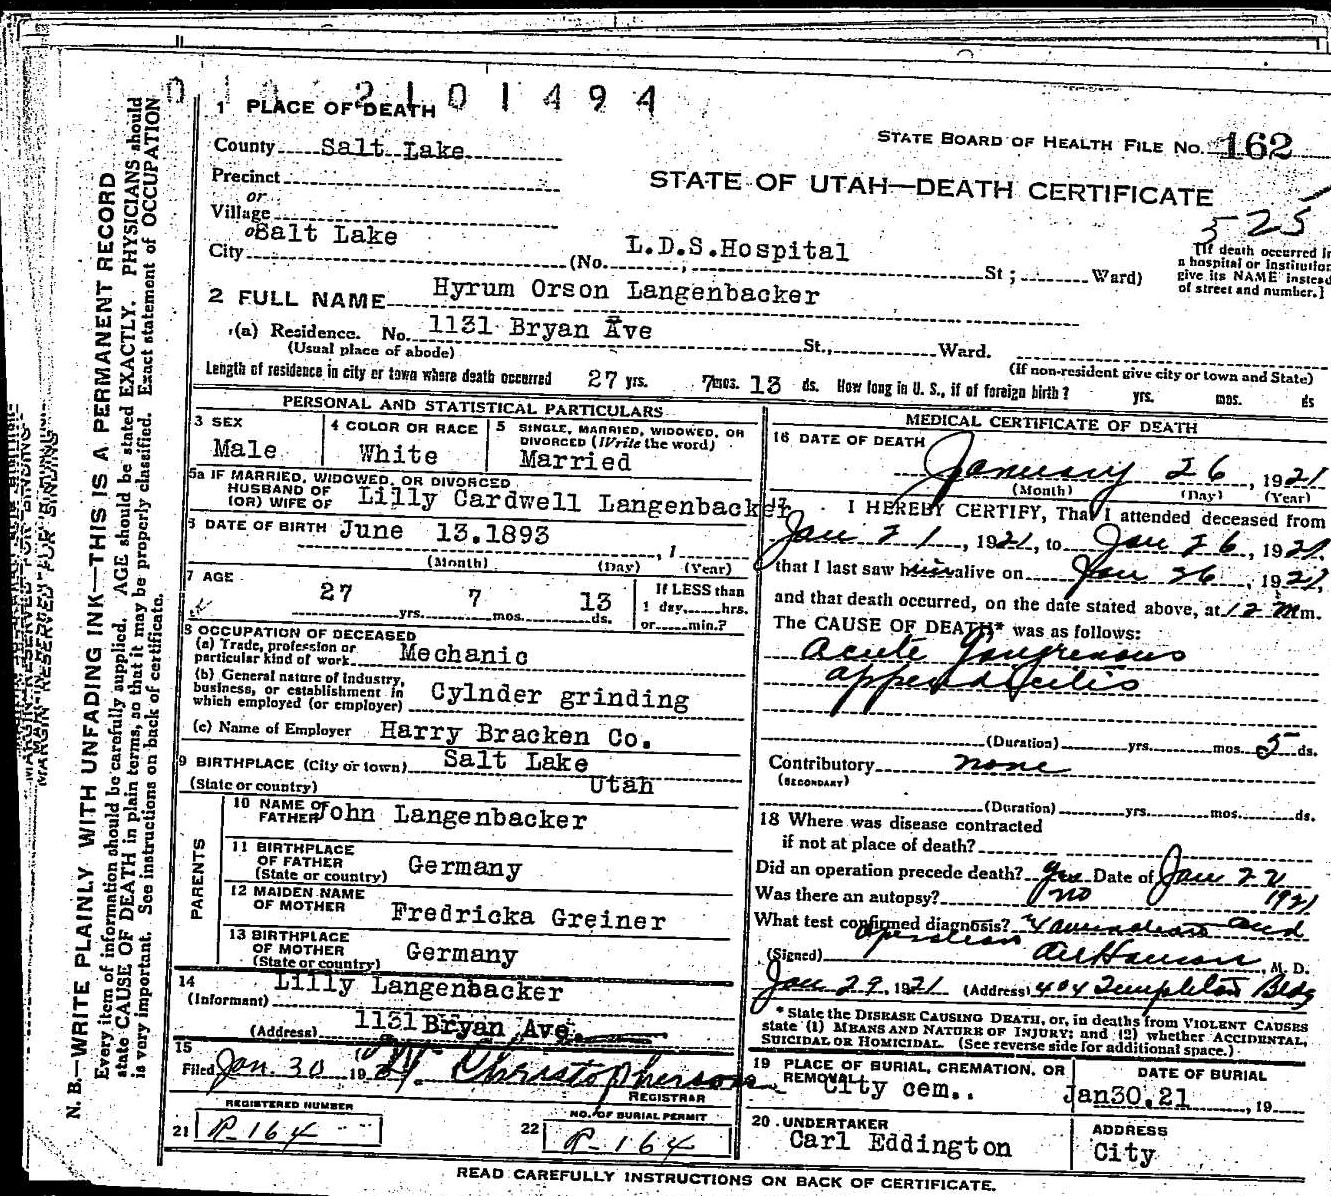 2101494
1 PLACE OF DEATH
STATE BOARD OF HEALTH FILE No. 162
County Salt Lake
Precinct
or
Village
STATE OF UTAH—DEATH CERTIFICATE
525
or
City Salt Lake (No. L.D.S.Hospital St; Ward)
[If death occurred in
a hospital or institution
give its NAME instead
of street and number.]
2 FULL NAME Hyrum Orson Langenbacker
(a) Residence. No. 1131 Bryan Ave St., Ward.
(Usual place of abode)
(If non-resident give city or town and State)
Length of residence in city or town where death occurred 27 yrs. 7 mos. 13 ds. How long in U. S., if of foreign birth? yrs. mos. ds
PERSONAL AND STATISTICAL PARTICULARS
3 SEX
Male
4 COLOR OR RACE
White
5 SINGLE, MARRIED, WIDOWED, OR
DIVORCED (Write the word)
Married
5a IF MARRIED, WIDOWED, OR DIVORCED
HUSBAND OF
(OR) WIFE OF Lilly Cardwell Langenbacker
6 DATE OF BIRTH June 13.1893 , 1
(Month) (Day) (Year)
7 AGE
27 yrs. 7 mos. 13 ds.
If LESS than
1 day, hrs.
or min.?
8 OCCUPATION OF DECEASED
(a) Trade, profession or
particular kind of work Mechanic
(b) General nature of industry,
business, or establishment in
which employed (or employer) Cylnder grinding
(c) Name of Employer Harry Bracken Co.
9 BIRTHPLACE (City or town) Salt Lake
(State or country) Utah
PARENTS
10 NAME OF
FATHER John Langenbacker
11 BIRTHPLACE
OF FATHER
(State or country) Germany
12 MAIDEN NAME
OF MOTHER Fredricka Greiner
13 BIRTHPLACE
OF MOTHER
(State or country) Germany
14
(Informant) Lilly Langenbacker
(Address) 1131 Bryan Ave.
15
Filed Jan. 30 1921. Christopherson
REGISTRAR
REGISTERED NUMBER
21 P-164
NO. OF BURIAL PERMIT
22 P-164
MEDICAL CERTIFICATE OF DEATH
16 DATE OF DEATH
January 26, 1921
(Month) (Day) (Year)
17 I HEREBY CERTIFY, That I attended deceased from
Jan 21, 1921, to Jan 26, 1921,
that I last saw him alive on Jan 26, 1921,
and that death occurred, on the date stated above, at 12 M m.
The CAUSE OF DEATH* was as follows:
Acute Gangrenous
appendicitis
(Duration) yrs. mos. 5 ds.
Contributory none
(SECONDARY)
(Duration) yrs. mos. ds.
18 Where was disease contracted
if not at place of death?
Did an operation precede death? yes Date of Jan 22
1921
Was there an autopsy? no
What test confirmed diagnosis? Examination and
operation
(Signed) , M. D.
Jan 29, 1921 (Address) 404 Templeton Bldg
* State the DISEASE CAUSING DEATH, or, in deaths from VIOLENT CAUSES
state (1) MEANS AND NATURE OF INJURY; and (2) whether ACCIDENTAL,
SUICIDAL OR HOMICIDAL. (See reverse side for additional space.)
19 PLACE OF BURIAL, CREMATION, OR
REMOVAL City cem..
DATE OF BURIAL
Jan30.21 , 19
20 UNDERTAKER
Carl Eddington
ADDRESS
City
READ CAREFULLY INSTRUCTIONS ON BACK OF CERTIFICATE.
MARGIN RESERVED FOR BINDING
N. B.—WRITE PLAINLY WITH UNFADING INK—THIS IS A PERMANENT RECORD
Every item of information should be carefully supplied. AGE should be stated EXACTLY. PHYSICIANS should
state CAUSE OF DEATH in plain terms, so that it may be properly classified. Exact statement of OCCUPATION
is very important. See instructions on back of certificate.